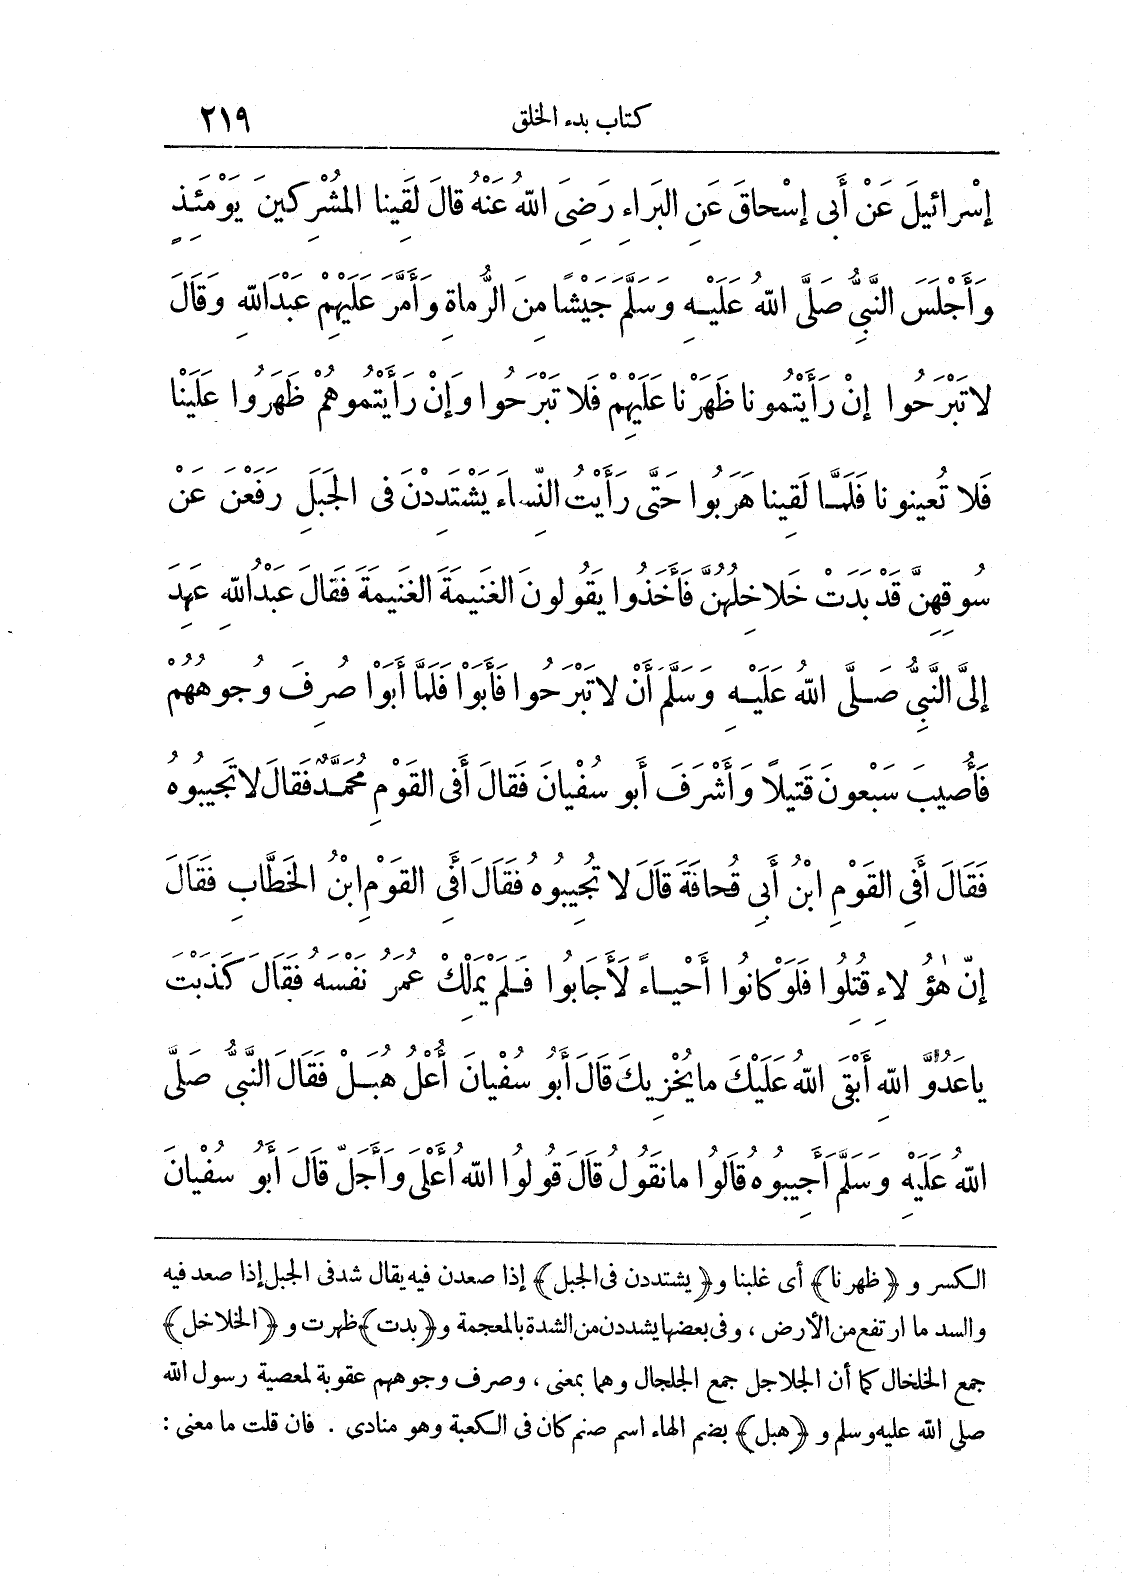 كتاب بدء الخلق ٢١٩
إِسْرائيلَ عَنْ أَبِى إِسْحاقَ عَنِ البَراءِ رَضِىَ اللهُ عَنْهُ قالَ لَقِينا المُشْرِكينَ يَوْمَئِذٍ
وَأَجْلَسَ النَّبِىُّ صَلَّى اللهُ عَلَيْهِ وَسَلَّمَ جَيْشًا مِنَ الرُّماةِ وَأَمَّرَ عَلَيْهِمْ عبدَاللهِ وَقَالَ
لا تَبْرَحُوا إنْ رَأَيْتُمونا ظَهَرْنا عَلَيْهِمْ فَلا تَبْرَحُوا وَإنْ رَأَيْتُموهُمْ ظَهَرُوا عَلَيْنا
فَلا تُعينونا فَلَمَّا لَقِينا هَرَبُوا حَتَّى رَأَيْتُ النِّساءَ يَشْتَدِدْنَ فى الجَبَلِ رَفَعْنَ عَنْ
سُوقِهِنَّ قَدْ بَدَتْ خَلاخِلُهُنَّ فَأَخَذُوا يَقُولونَ الغَنيمَةَ الغَنيمَةَ فَقالَ عَبْدُاللهِ عَهِدَ
إلىَّ النَّبِىُّ صَلَّى اللهُ عَلَيْهِ وَسَلَّمَ أَنْ لا تَبْرَحُوا فَأَبَوْا فَلَمَّا أَبَوْا صُرِفَ وُجوهُهُمْ
فَأُصيبَ سَبْعونَ قَتيلاً وَأَشْرَفَ أَبو سُفْيانَ فَقالَ أَفى القَوْمِ مُحَمَّدٌ فَقالَ لا تُجيبُوهُ
فَقَالَ أَفِى القَوْمِ ابْنُ أَبِي قُحافَةَ قالَ لا تُجِيبُوهُ فَقَالَ أَفِى القَوْمِ ابْنُ الخَطَّابِ فَقَالَ
إنّ هٰؤُلاءِ قُتِلُوا فَلَوْ كانُوا أَحْياءً لَأَجَابُوا فَلَمْ يَمْلِكْ عُمَرُ نَفْسَهُ فَقَالَ كَذَبْتَ
يا عَدُوَّ اللهِ أَبْقَى اللهُ عَلَيْكَ ما يُخْزِيكَ قَالَ أَبُو سُفْيانَ أُعْلُ هُبَلْ فَقَالَ النَّبِىُّ صَلَّى
اللهُ عَلَيْهِ وَسَلَّمَ أَجِيبُوهُ قَالُوا ما نَقُولُ قَالَ قُولُوا اللهُ أَعْلَى وَأَجَلّ قَالَ أَبُو سُفْيانَ
الكسر و ﴿ظهرنا﴾ أى غلبنا و﴿يشتددن فى الجبل﴾ إذا صعدن فيه يقال شد فى الجبل إذا صعد فيه
والسد ما ارتفع من الأرض ، وفى بعضها يشددن من الشدة بالمعجمة و﴿بدت﴾ ظهرت و ﴿الخلاخل﴾
جمع الخلخال كما أن الجلاجل جمع الجلجال وهما بمعنى ، وصرف وجوههم عقوبة لمعصية رسول الله
صلى الله عليه وسلم و ﴿هبل﴾ بضم الهاء اسم صنم كان فى الكعبة وهو منادى . فان قلت ما معنى :